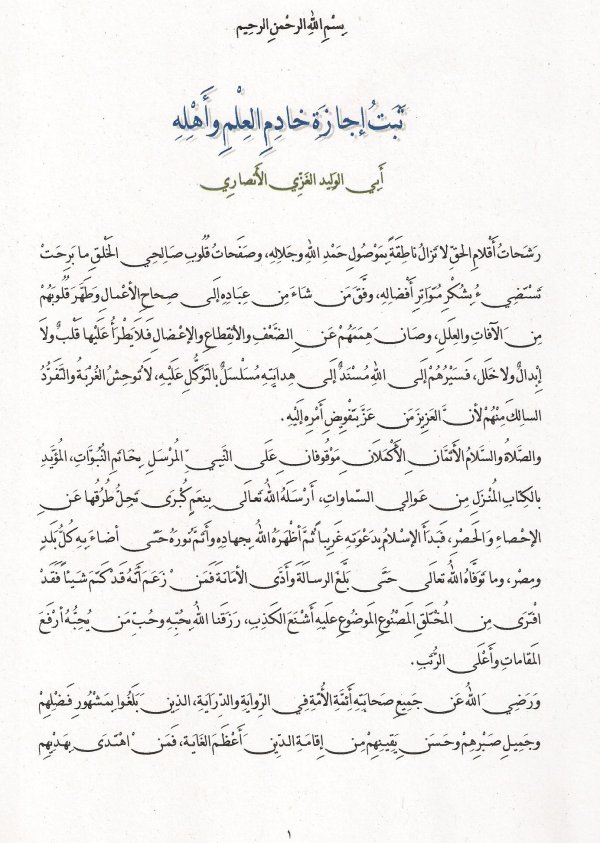 بِسْمِ اللهِ الرحْمنِ الرحِيم
ثَبَتُ إجازَةِ خادِمِ العِلْمِ وَأَهْلِهِ
أَبِي الوَلِيد الغَزِّي الأَنصارِي
رَشَحاتُ أَقْلامِ الحَقِّ لا تَزالُ ناطِقَةً بِمَوْصُولِ حَمْدِ اللهِ وَجَلالِهِ، وَصَفَحاتُ قُلُوبِ صالِحِي الخَلْقِ ما بَرِحَتْ
تَسْتَضِيءُ بِشُكْرِ مُتَواتِرِ أَفْضالِهِ، وَفَّقَ مَن شاءَ مِن عِبادِهِ إِلَى صِحاحِ الأَعْمالِ وَطَهَّرَ قُلُوبَهُمْ
مِن الآفاتِ وَالعِلَلِ، وَصانَ هِمَمَهُمْ عَنِ الضَّعْفِ وَالانْقِطاعِ وَالإعْضالِ فَلا يَطْرَأُ عَلَيْها قَلْبٌ وَلا
إبْدالٌ وَلا خَلَل، فَسَيْرُهُمْ إِلَى اللهِ مُسْنَدٌ إِلَى هِدايَتِهِ مُسَلْسَلٌ بِالتَوَكُّلِ عَلَيْهِ، لا تُوحِشُ الغُرْبَةُ وَالتَّفَرُّدُ
السالِكَ مِنْهُمْ لأنَّ العَزِيزَ مَن عَزَّ بِتَفْوِيضِ أَمْرِهِ إِلَيْهِ.
وَالصَّلاةُ وَالسَّلامُ الأَتَمَّانِ الأَكْمَلانِ مَوْقُوفانِ عَلَى النَّبِيِّ المُرْسَلِ بِخاتَمِ النُّبُوَّاتِ، المُؤَيَّدِ
بِالكِتابِ المُنْزَلِ مِن عَوالِي السَّماواتِ، أَرْسَلَهُ اللهُ تَعالَى بِنِعَمٍ كُبْرَى تَجِلُّ طُرُقُها عَنِ
الإحْصاءِ وَالحَصْرِ، فَبَدَأَ الإسْلامُ بِدَعْوَتِهِ غَرِيباً ثُمَّ أَظْهَرَهُ اللهُ بِجِهادِهِ وَأَتَمَّ نُورَهُ حَتَّى أَضاءَ بِهِ كُلُّ بَلَدٍ
وَمِصْر، وَما تَوَفَّاهُ اللهُ تَعالَى حَتَّى بَلَّغَ الرِسالَةَ وَأَدَّى الأمَانَةَ فَمَنْ زَعَمَ أَنَّهُ قَدْ كَتَمَ شَيئاً فَقَدْ
افْتَرَى مِن المُخْتَلَقِ المَصْنُوعِ المَوضُوعِ عَلَيهِ أَشْنَعَ الكَذِبِ، رَزَقَنا اللهُ بِحُبِّهِ وَحُبِّ مَن يُحِبُّهُ أَرْفَعَ
المَقاماتِ وَأَعْلَى الرُّتَبِ.
وَرَضِيَ اللهُ عَن جَمِيعِ صَحابَتِهِ أَئِمَّةِ الأُمَّةِ فِي الرِّوايَةِ وَالدِّرايَة، الذِينَ بَلَغُوا بِمَشْهُورِ فَضْلِهِمْ
وَجَمِيلِ صَبْرِهِمْ وَحَسَنِ يَقِينِهِمْ مِن إقامَةِ الدِّينِ أَعْظَمَ الغايَة، فَمَن اهْتَدَى بِهَدْيِهِم
١